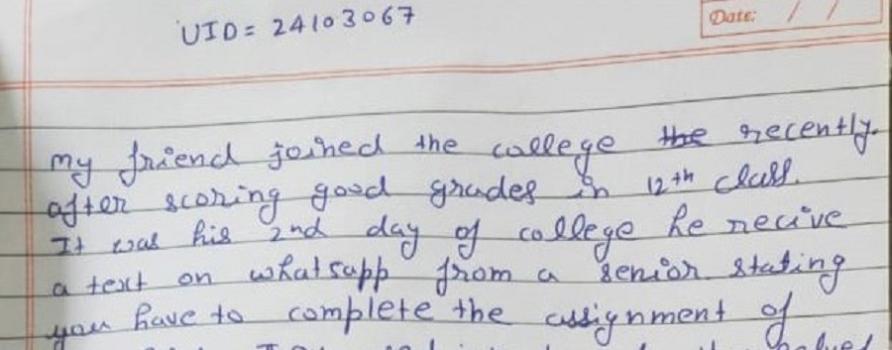 UID = 24103067
Date: / /
my friend joined the college the recently.
after scoring good grades in 12th class.
It was his 2nd day of college he recive
a text on whatsapp from a senior stating
you have to complete the assignment of